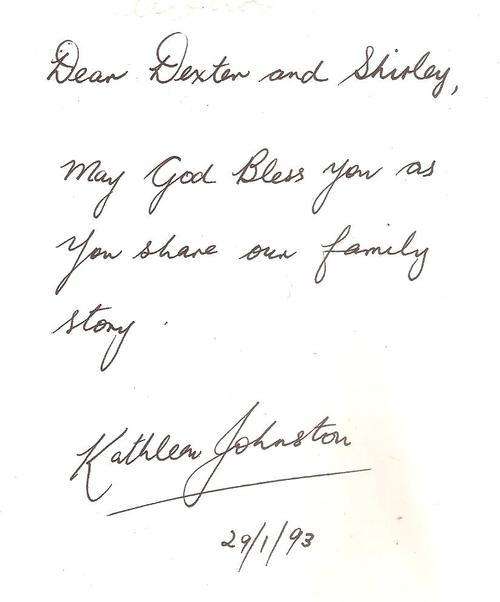 Dear Dexter and Shirley,
May God Bless you as
You share our family
story.
Kathleen Johnston
29/1/93